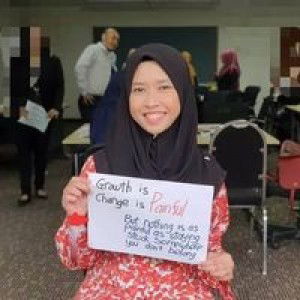 Growth is
Change is Painful
But nothing is as
painful as staying
stuck somewhere
you don't belong